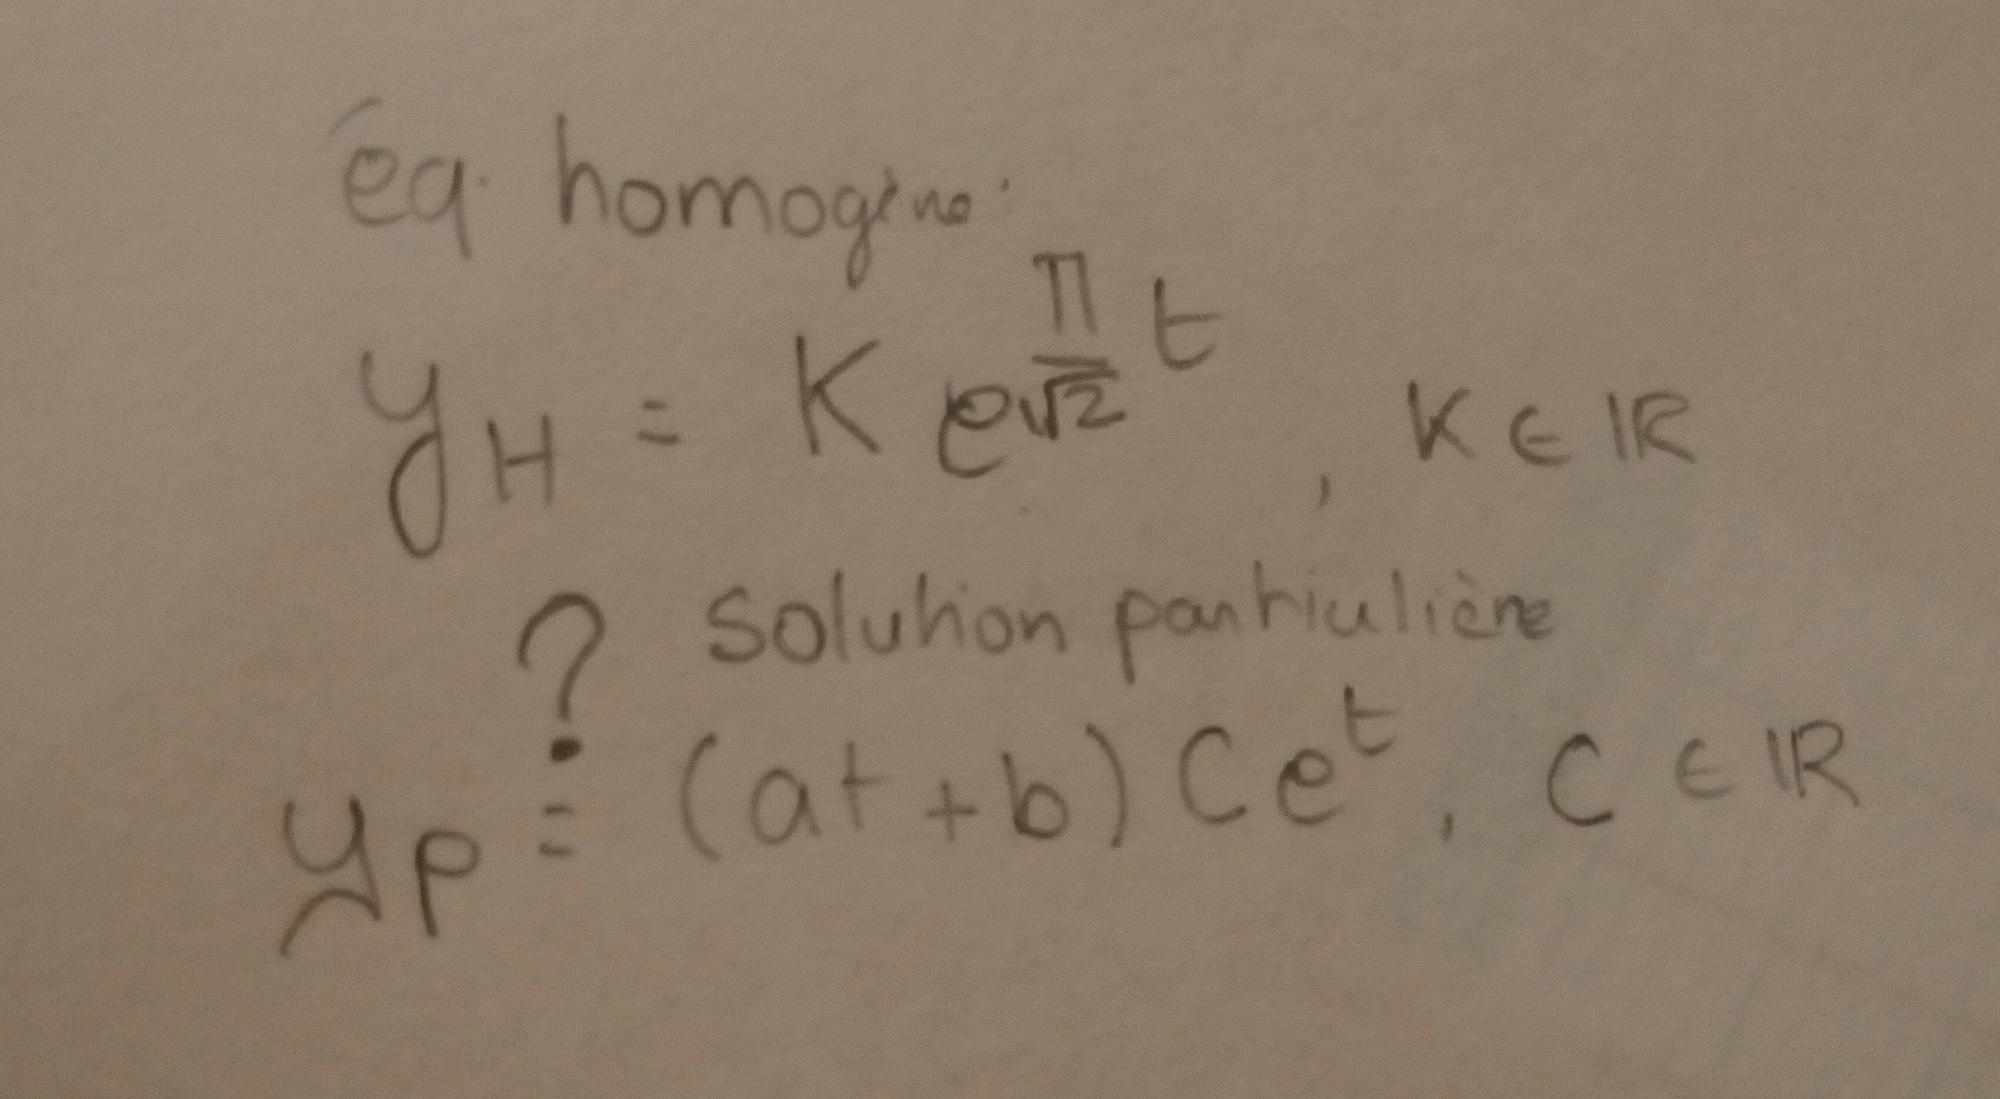 éq. homogène:
y_H = K e^{\frac{π}{\sqrt{2}} t} , K ∈ ℝ
? solution particulière
y_P = (at + b) C e^t , C ∈ ℝ